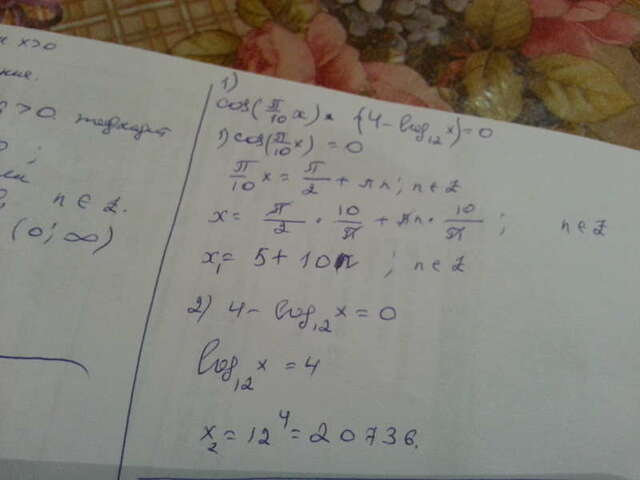 x>0
>0 подходит
n ∈ Z.
(0; ∞)
1)
cos(π/10 x) * (4 - log₁₂ x) = 0
1) cos(π/10 x) = 0
π/10 x = π/2 + πn; n ∈ Z
x = π/2 · 10/π + πn · 10/π ; n ∈ Z
x₁ = 5 + 10n ; n ∈ Z
2) 4 - log₁₂ x = 0
log₁₂ x = 4
x₂ = 12⁴ = 20736.